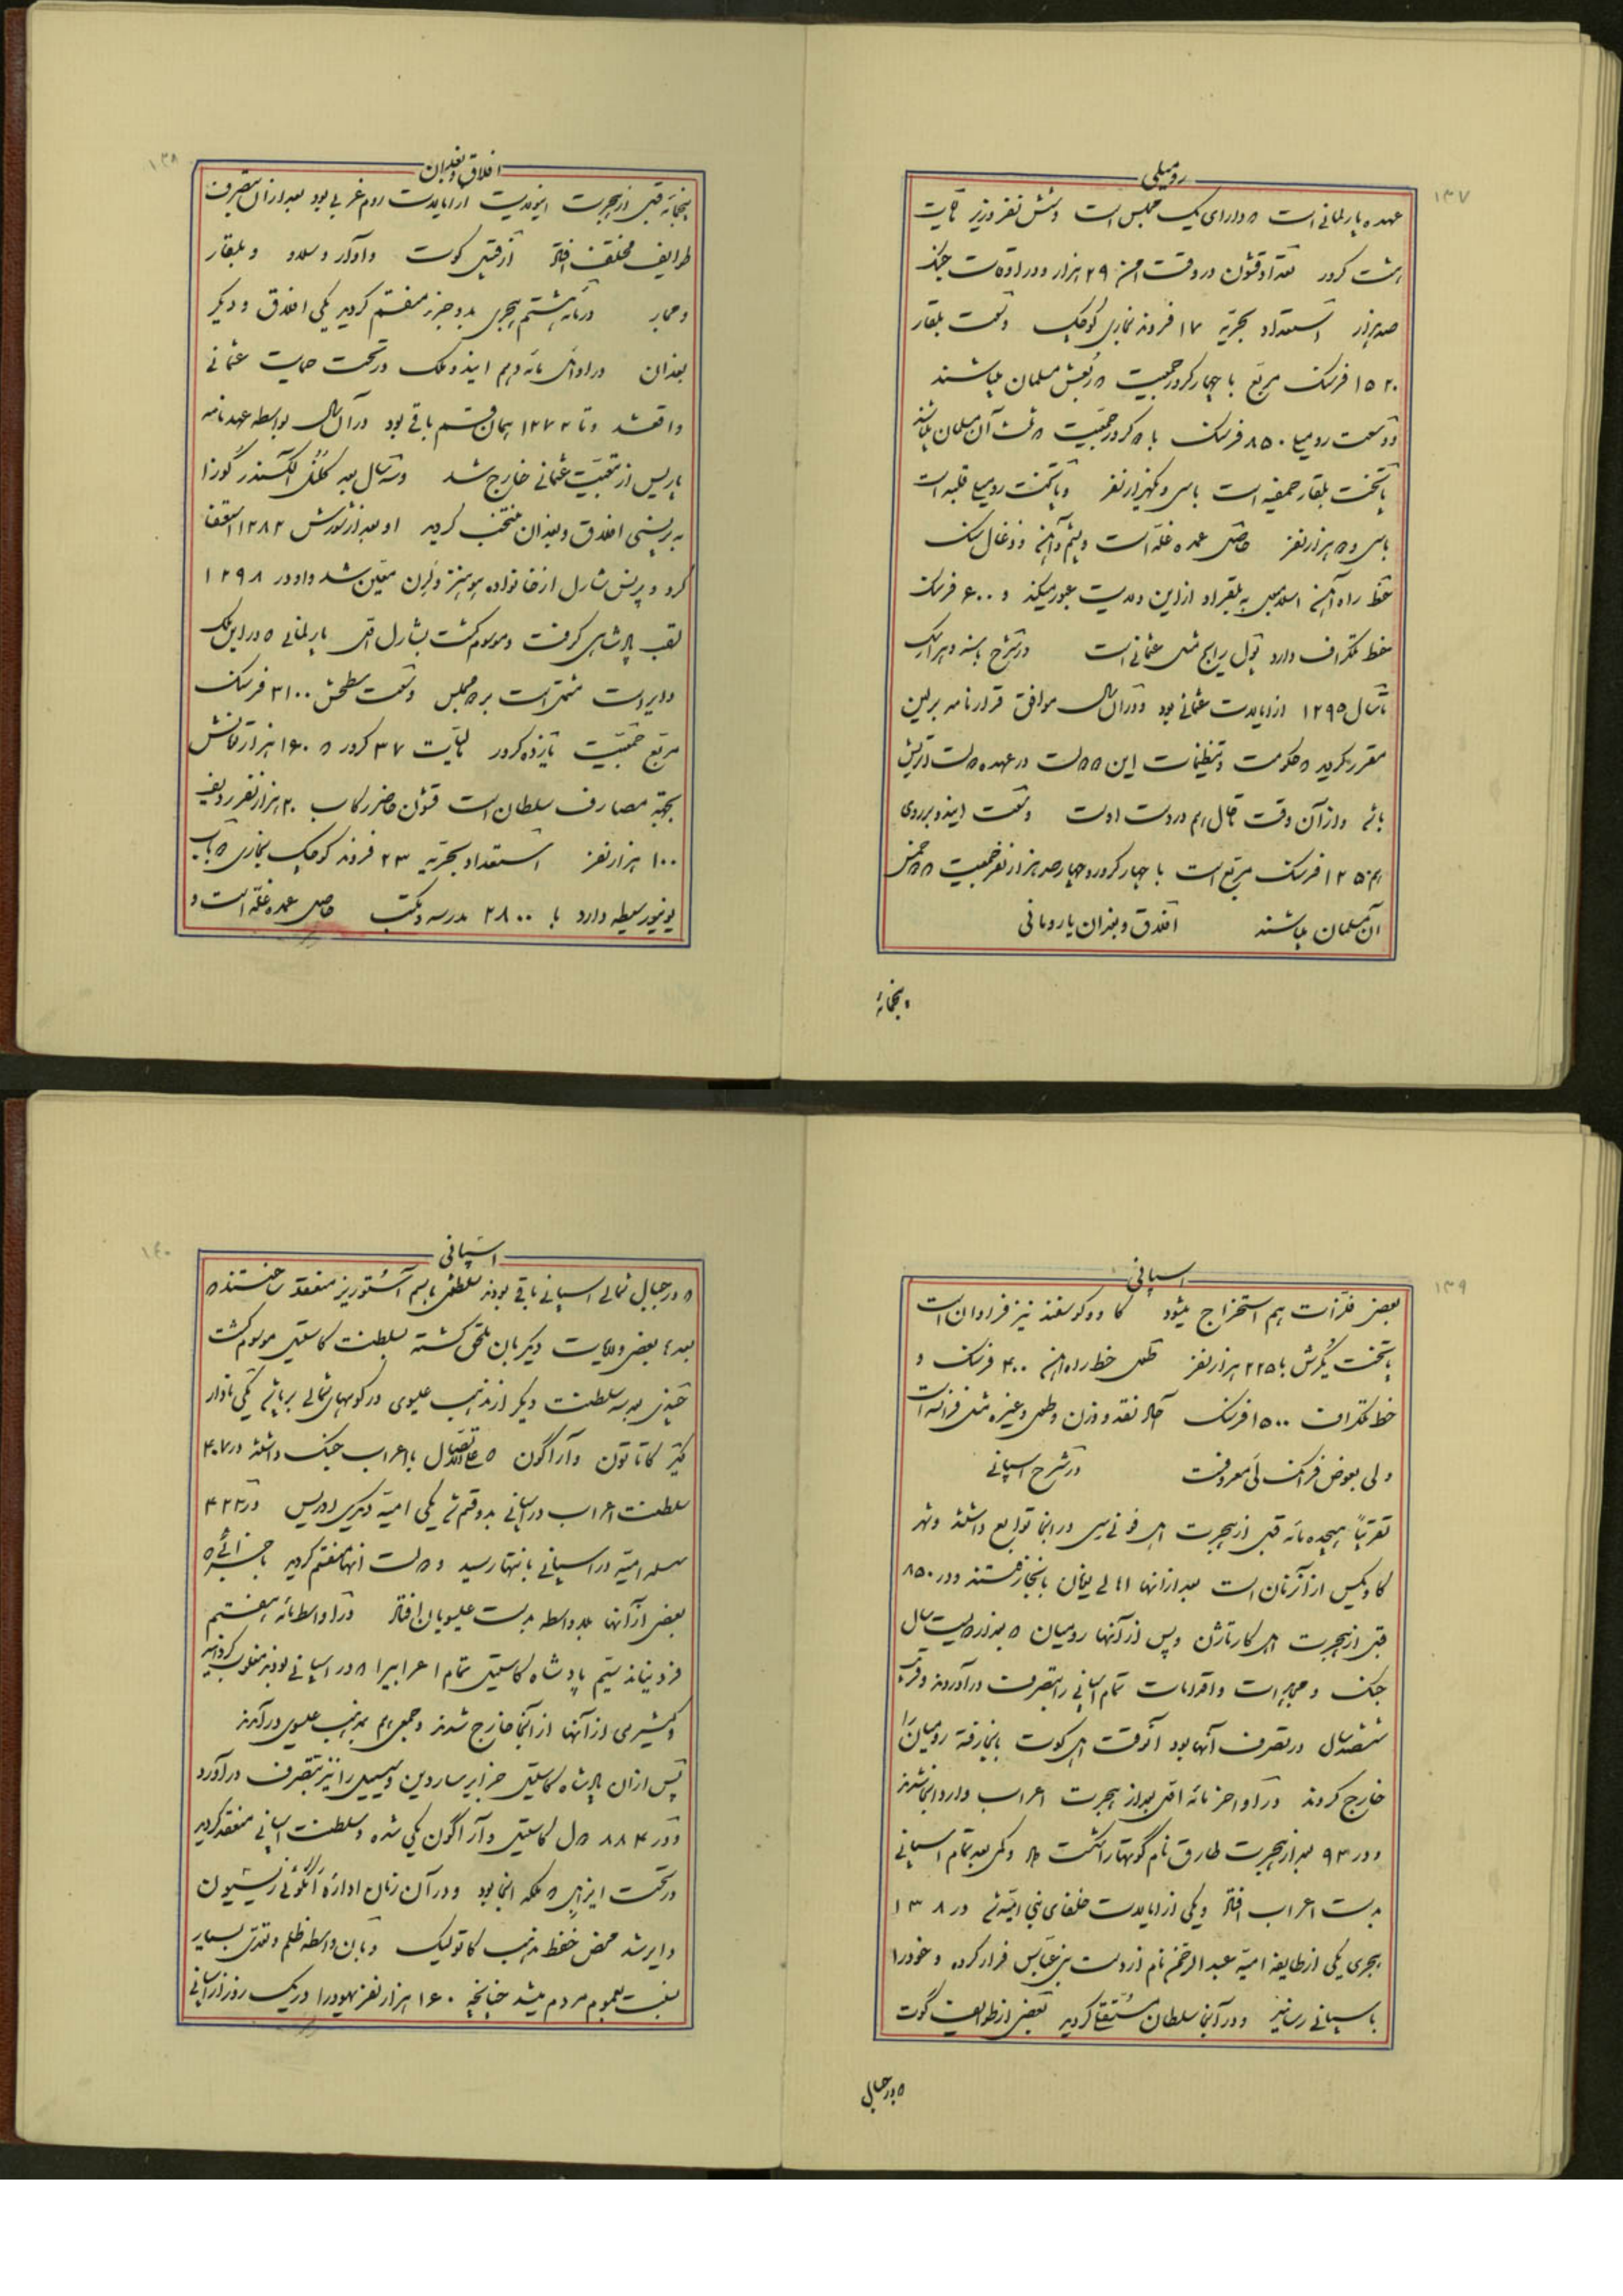 ۱۳۷
رومیلی
عهده پارلمانی است که دارای یک مجلس است و شش نفر وزیر مالیات
هشت کرور تعداد قشون در وقت امن ۲۹ هزار و در اوقات جنگ
صد هزار استعداد بحریه ۱۷ فروند بخاری کوچک وسعت بلغار
۱۵۲۰ فرسنگ مربع با چهار کرور جمعیت که ربعش مسلمان میباشند
و وسعت رومیلیا ۸۵۰ فرسنگ با کرور جمعیت که ثلث آن مسلمان میباشند
پایتخت بلغار است با سی و یکهزار نفر و پایتخت رومیلیا فلبه است
با سی و هزار نفر حاصل عمده غله است و پشم و آهن و ذغال سنگ
خط راه آهن اسلامبول به بلغراد از این ولایت عبور میکند و ۶۰۰ فرسنگ
خط تلگراف دارد پول رایج مثل عثمانی است در شرح بسنه و هرزگ
تا سال ۱۲۹۵ از ایالات عثمانی بود و در آن سال موافق قرارنامه برلین
مقرر گردید که حکومت و تنظیمات این در عهده دولت اتریش
باشد و از آن وقت تا حال هم در دست اوست وسعت این دو بر روی
هم ۱۲۵۰ فرسنگ مربع است با چهار کرور و چهار صد هزار نفر جمعیت که خمس
آن مسلمان میباشند افلاق و بغدان یا رومانی
پنجمائه
۱۳۸
افلاق و بغدان
پنجمائه قبل از هجرت این ولایت از ایالات روم غربی بود بعد از آن بتصرف
طوایف مختلف افتاد از قبیل گوت و آوار و سلاو و بلغار
و مجار در مائه هشتم هجری بدو جزء منقسم گردید یکی افلاق و دیگر
بغدان در اوائل مائه دهم این دو ملک در تحت حمایت عثمانی
واقع شد و تا ۱۲۷۲ بهمان قسم باقی بود در آن سال بواسطه عهدنامه
پاریس از تبعیت عثمانی خارج شد و سه سال بعد کلنل الکسندر گوزا
به پرنسی افلاق و بغدان منتخب گردید او بعد از شورش ۱۲۸۲ استعفا
کرد و پرنس شارل از خانواده هوهنزولرن معین شد و او در ۱۲۹۸
لقب پادشاهی گرفت و موسوم گشت بشارل اول پارلمانی که در این ملک
دایر است مشتمل است بر دو مجلس وسعت سطحش ۳۱۰۰ فرسنگ
مربع جمعیت یازده کرور مالیات ۳۷ کرور که ۱۶۰ هزار تومانش
بجهة مصارف سلطان است قشون حاضر رکاب ۲۰ هزار نفر ردیف
۱۰۰ هزار نفر استعداد بحریه ۲۳ فروند کوچک بخاری
یونیورسیطه دارد با ۲۸۰۰ مدرسه و مکتب حاصل عمده غله است و
۱۳۹
اسپانی
بعضی فلزات هم استخراج میشود گاو و گوسفند نیز فراوان است
پایتخت بگرش با ۲۲۵ هزار نفر طول خط راه آهن ۴۰۰ فرسنگ و
خط تلگراف ۱۵۰۰ فرسنگ نقد و وزن و طول و غیره مثل فرانسه است
ولی بعوض فرانک لی معروفست در شرح اسپانی
تقریباً هیجده مائه قبل از هجرت اهل فونیسی در آنجا توابع داشتند و شهر
کادیکس از آن زمان است بعد از آنها اهالی یونان بآنجا رفتند و در ۸۵۰
قبل از هجرت اهل کارتاژن و پس از آنها رومیان که بعد از دویست سال
جنگ و مجادلات و اقدامات تمام اسپانی را بتصرف در آوردند و قریب
ششصد سال در تصرف آنها بود آنوقت اهل گوت بآنجا رفته رومیان را
خارج کردند در اواخر مائه اول بعد از هجرت اعراب وارد آنجا شدند
و در ۹۳ بعد از هجرت طارق نام گوتها را شکست داد و کمی بعد تمام اسپانی
بدست اعراب افتاد و یکی از ایالات خلفای بنی امیه شد در ۱۳۸
هجری یکی از طایفه امیه عبدالرحمن نام از دست بنی عباس فرار کرده و خود را
باسپانی رسانید و در آنجا سلطان مستقل گردید بعضی از طوایف گوت
که در جبال
۱۴۰
اسپانی
که در جبال شمالی اسپانی باقی بودند سلطنتی باسم آستوریز منعقد ساختند که
بعدها بعضی ولایات دیگر بآن ملحق گشته بسلطنت کاستیل موسوم گشت
چندی بعد سه سلطنت دیگر از مذهب عیسوی در کوههای شمالی برپا شد یکی ناوار
دیگر کاتالون و آراگون که علی الاتصال با اعراب جنگ داشتند در ۴۰۷
سلطنت اعراب در اسپانی بدو قسم شد یکی امیه دیگری ادریس در ۴۲۳
سلسله امیه در اسپانی بانتها رسید و دولت آنها منقسم گردید باجزائی که
بعضی از آنها بلاواسطه بدست عیسویان افتاد در اواسط مائه هفتم
فردیناند سیم پادشاه کاستیل تمام اعرابیرا که در اسپانی بودند مغلوب گردانید
و کثیری از آنها از آنجا خارج شدند و جمعی هم بمذهب عیسوی در آمدند
پس از آن پادشاه کاستیل جزایر ساردین و سیسیل را نیز بتصرف در آورد
و در ۸۸۴ کاستیل و آراگون یکی شده و سلطنت اسپانی منعقد گردید
در تحت ایزابل که ملکه آنجا بود و در آن زمان اداره انکوئیزیسیون
دایر شد محض حفظ مذهب کاتولیک و بآن واسطه ظلم و تعدی بسیار
نسبت بعموم مردم میشد چنانچه ۱۶۰ هزار نفر یهود را در یک روز از اسپانی